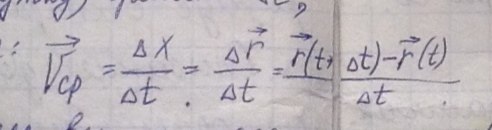 : V⃗ср = Δx/Δt = Δr⃗/Δt = r⃗(t+Δt)-r⃗(t)/Δt